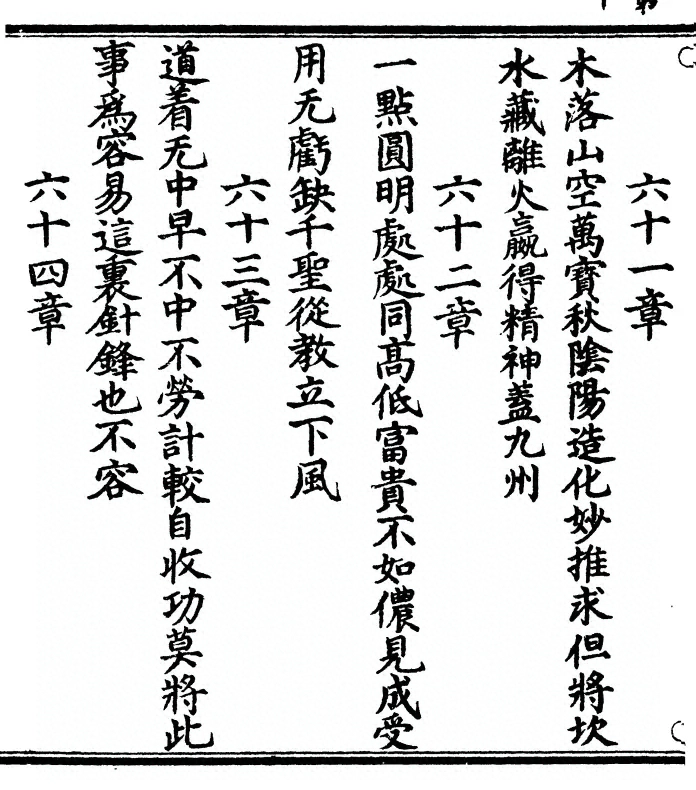 六十一章
木落山空萬寶秋陰陽造化妙推求但將坎
水藏離火贏得精神蓋九州
六十二章
一點圓明處處同高低富貴不如儂見成受
用无虧缺千聖從教立下風
六十三章
道着无中早不中不勞計較自收功莫將此
事爲容易這裏針鋒也不容
六十四章